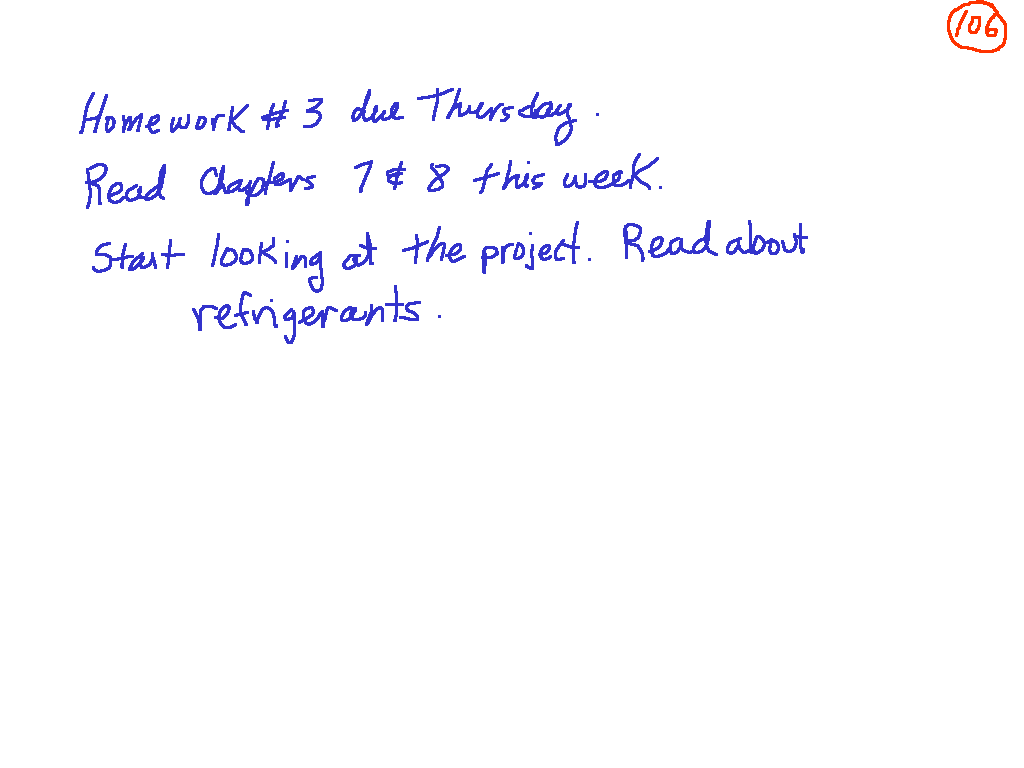 106
Homework # 3 due Thursday.
Read Chapters 7 & 8 this week.
Start looking at the project. Read about
refrigerants.